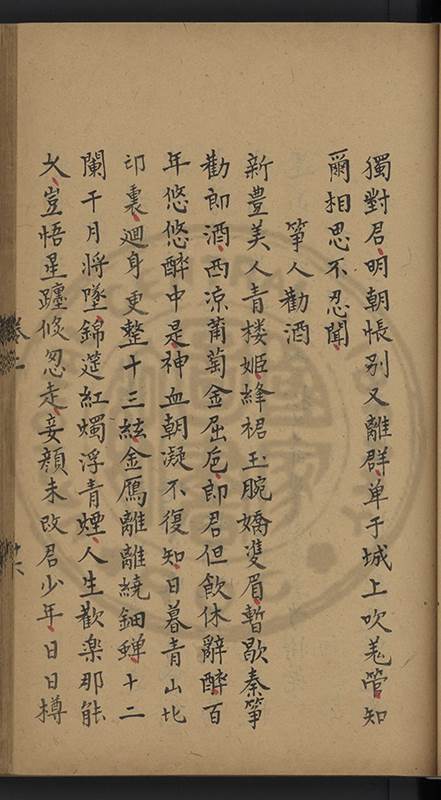 獨對君明朝悵別又離群單于城上吹羌管知
爾相思不忍聞
箏人勸酒
新豊美人青楼姬絳裙玉腕嬌雙眉暫歇秦箏
勸郎酒西凉葡萄金屈卮郎君但飲休辭醉百
年悠悠醉中是神血朝凝不復知日暮青山北
邙裏迴身更整十三絃金鴈離離繞鈿蟬十二
闌干月將墜錦筵紅燭浮青煙人生歡楽那能
久豈悟星躔倏忽走妾顔未改君少年日日樽